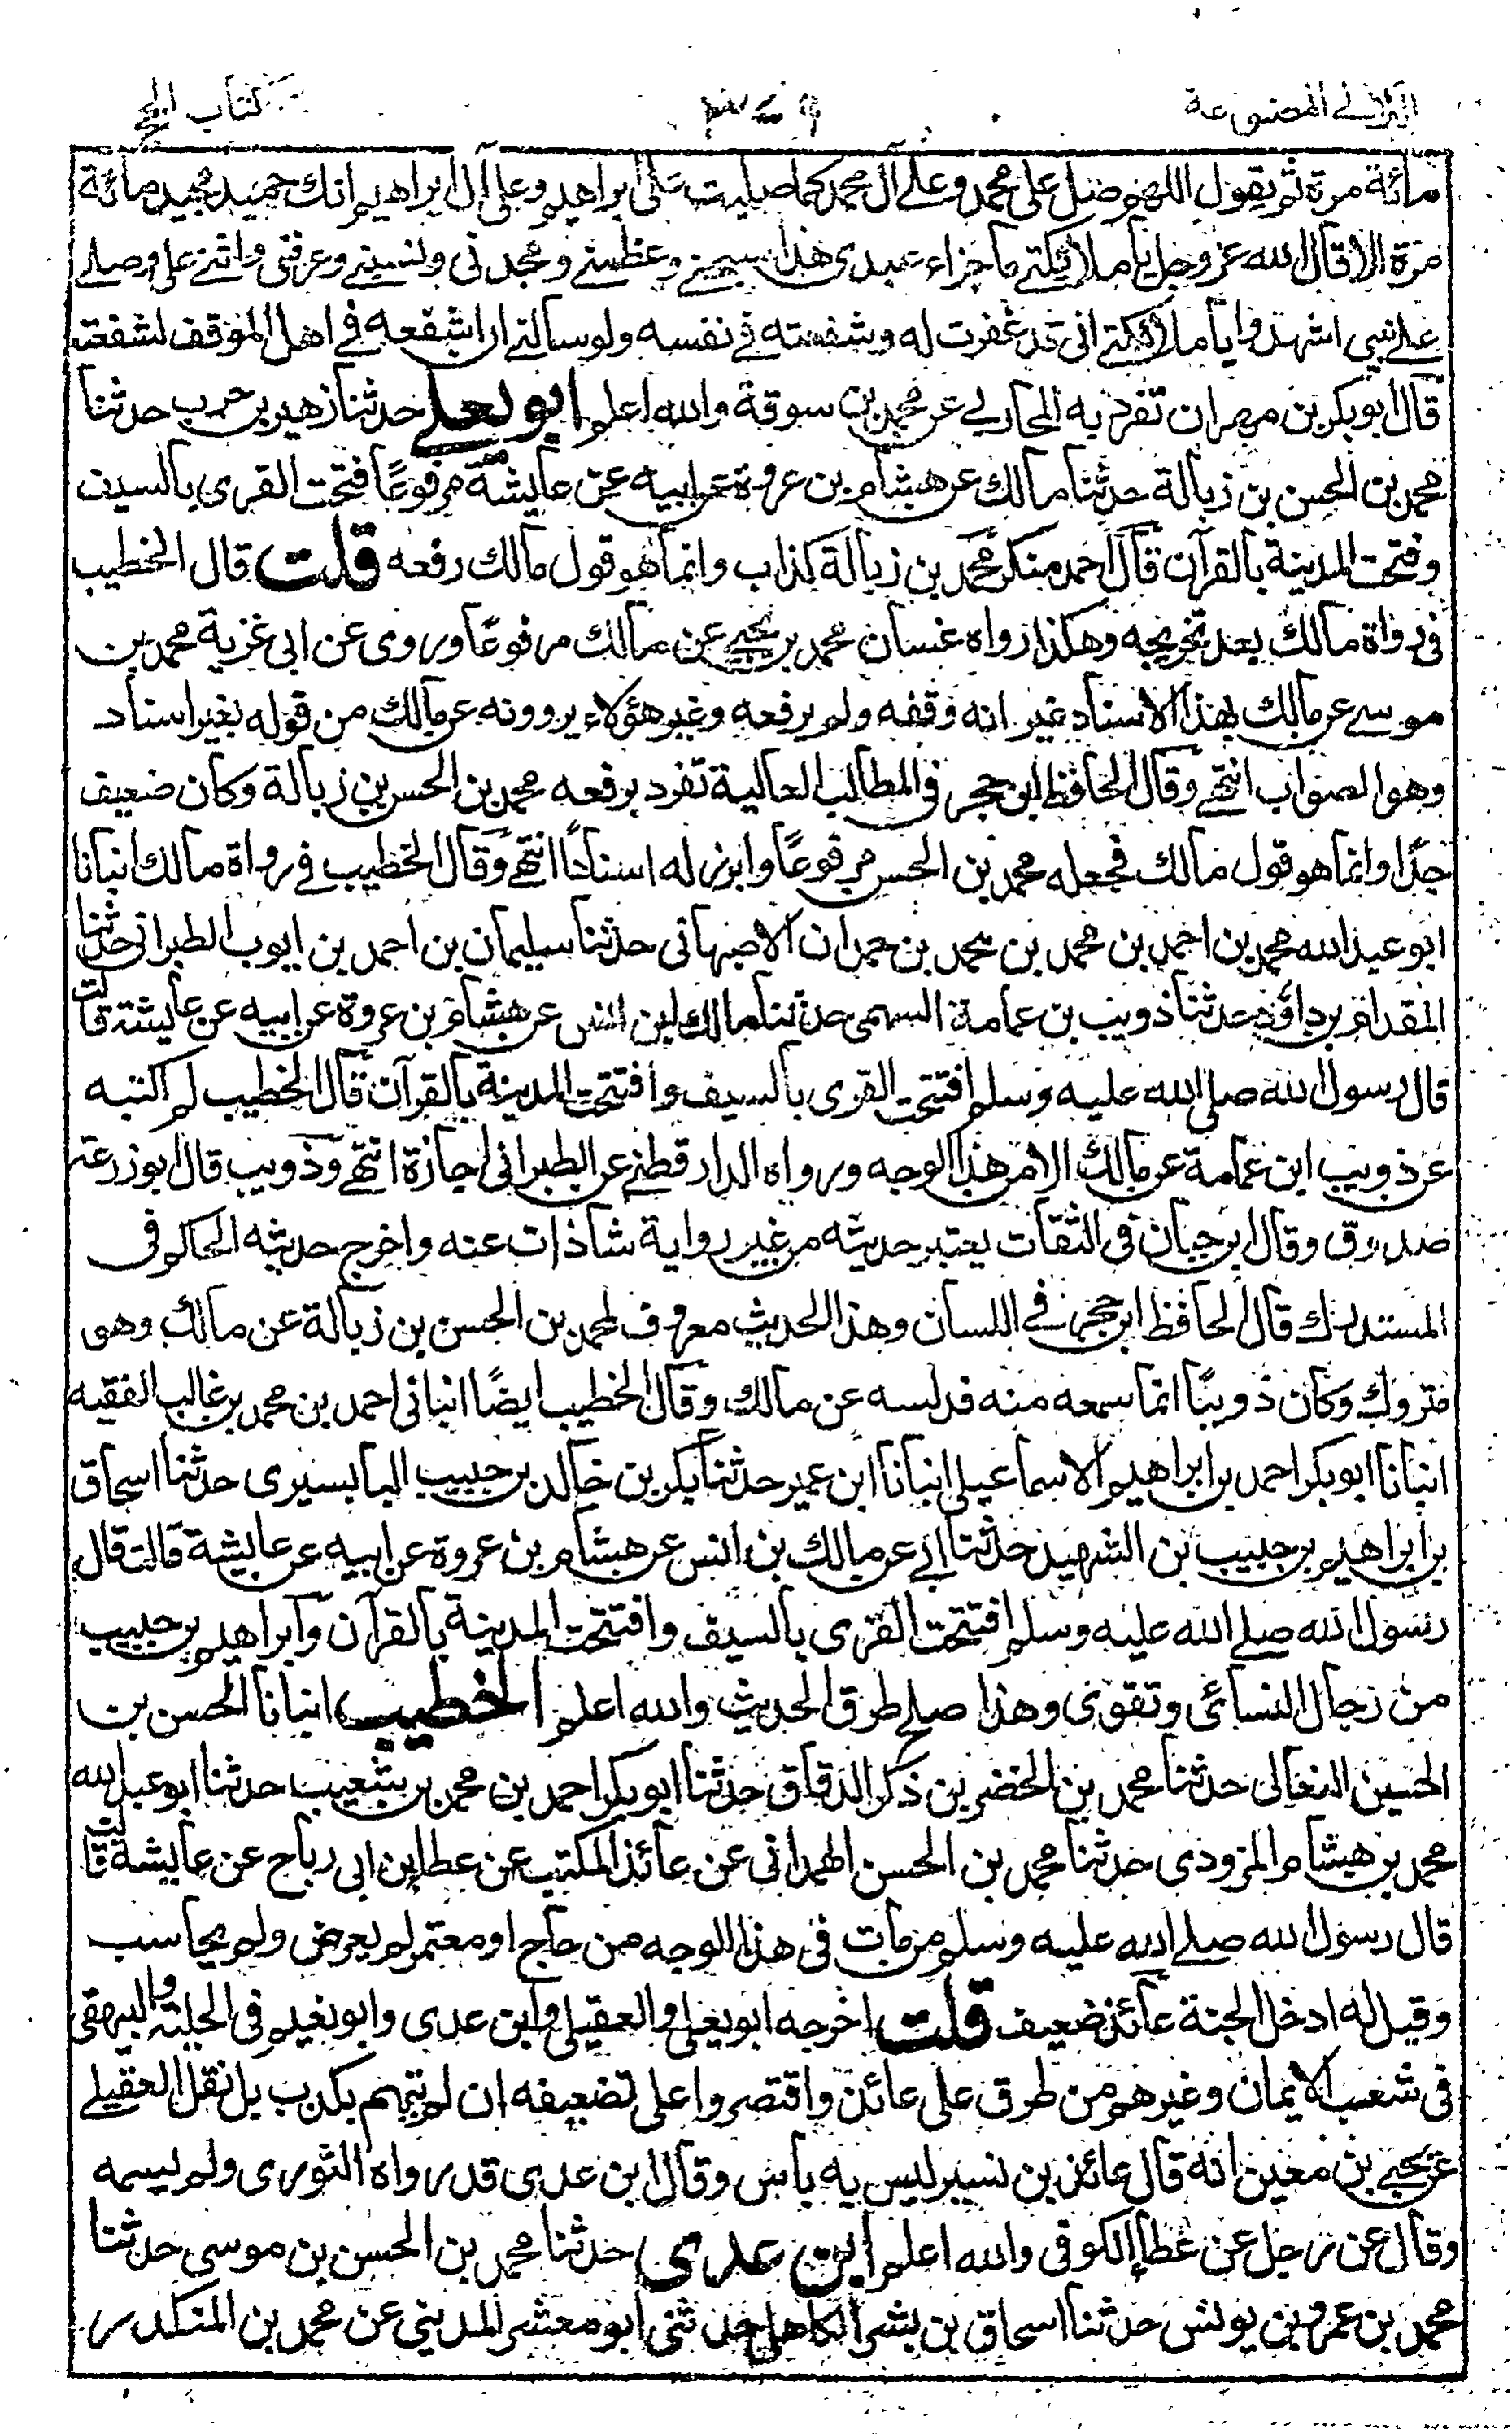 اللآلئ المصنوعة
كتاب الحج
مائة مرة ثم يقول اللهم صل على محمد وعلى آل محمد كما صليت على ابراهيم وعلى آل ابراهيم انك حميد مجيد مائة
مرة الا قال الله عز وجل يا ملائكتي ما جزاء عبدي هذا سبحني وعظمني ومجدني ونسبني وعرفني واثنى علي وصلى
على نبيي اشهدوا يا ملائكتي اني قد غفرت له وشفعته في نفسه ولو سألني ان اشفعه في اهل الموقف لشفعته
قال ابو بكر بن مهران تفرد به المحاربي عن محمد بن سوقة والله اعلم ابو يعلى حدثنا زهير بن حرب حدثنا
محمد بن الحسن بن زبالة حدثنا مالك عن هشام بن عروة عن ابيه عن عايشة مرفوعًا فتحت القرى بالسيف
وفتحت المدينة بالقرآن قال احمد منكر محمد بن زبالة كذاب وانما هو قول مالك رفعه قلت قال الخطيب
في رواة مالك بعد تخريجه وهكذا رواه غسان محمد بن يحيى عن مالك مرفوعًا وروى عن ابي غزية محمد بن
موسى عن مالك بهذا الاسناد غير انه وقفه ولم يرفعه وغير هؤلاء يروونه عن مالك من قوله بغير اسناد
وهو الصواب انتهى وقال الحافظ ابن حجر في المطالب العالية تفرد برفعه محمد بن الحسن بن زبالة وكان ضعيف
جدًا وانما هو قول مالك فجعله محمد بن الحسن مرفوعًا وابرز له اسنادًا انتهى وقال الخطيب في رواة مالك انبانا
ابو عبد الله محمد بن احمد بن محمد بن محمد بن حمران الاصبهاني حدثنا سليمان بن احمد بن ايوب الطبراني حدثنا
المقدام بن داؤد حدثنا ذويب بن عمامة السهمي حدثنا مالك بن انس عن هشام بن عروة عن ابيه عن عايشة قالت
قال رسول الله صلى الله عليه وسلم افتتحت القرى بالسيف وافتتحت المدينة بالقرآن قال الخطيب لم اكتبه
عن ذويب ابن عمامة عن مالك الا من هذا الوجه ورواه الدارقطني عن الطبراني اجازة انتهى وذويب قال ابو زرعة
صدوق وقال ابن حبان في الثقات يعتبر حديثه من غير رواية شاذات عنه واخرج حديثه الحاكم في
المستدرك قال الحافظ ابن حجر في اللسان وهذا الحديث معروف لمحمد بن الحسن بن زبالة عن مالك وهو
متروك وكان ذويبًا انما سمعه منه فدلسه عن مالك وقال الخطيب ايضًا انباني احمد بن محمد بن غالب الفقيه
انبانا ابو بكر احمد بن ابراهيم الاسماعيلي انبانا ابن عمير حدثنا بكر بن خالد بن حبيب البابسيري حدثنا اسحاق
بن ابراهيم بن حبيب بن الشهيد حدثنا ابي عن مالك بن انس عن هشام بن عروة عن ابيه عن عايشة قالت قال
رسول الله صلى الله عليه وسلم افتتحت القرى بالسيف وافتتحت المدينة بالقرآن وابراهيم بن حبيب
من رجال النسائي وتقوى وهذا صلح طرق الحديث والله اعلم الخطيب انبانا الحسن بن
الحسين النعالى حدثنا محمد بن الخضر بن ذكر الدقاق حدثنا ابو بكر احمد بن محمد بن شعيب حدثنا ابو عبد الله
محمد بن هشام المروذي حدثنا محمد بن الحسن الهمداني عن عائذ المكتب عن عطا ابن ابي رباح عن عايشة قالت
قال رسول الله صلى الله عليه وسلم من مات في هذا الوجه من حاج او معتمر لم يعرض ولم يحاسب
وقيل له ادخل الجنة عائذ ضعيف قلت اخرجه ابو يعلى والعقيلي وابن عدي وابو نعيم في الحلية والبيهقي
في شعب الايمان وغيرهم من طرق على عائذ واقتصروا على تضعيفه ان لم يتهم بكذب بل نقل العقيلي
عن يحيى بن معين انه قال عائذ بن نسير ليس به باس وقال ابن عدي قد رواه الثوري ولم يسمه
وقال عن رجل عن عطا الكوفي والله اعلم ابن عدي حدثنا محمد بن الحسن بن موسى حدثنا
محمد بن عمرو بن يونس حدثنا اسحاق بن بشر الكاهلي حدثني ابو معشر المديني عن محمد بن المنكدر